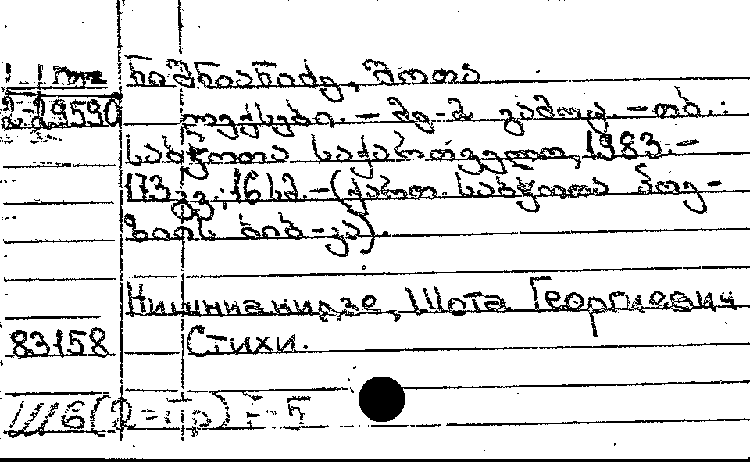 ნიშნიანიძე, შოთა
2-29590 ლექსები. – მე-2 გამოც. – თბ.:
საბჭოთა საქართველო, 1983. –
173 გვ.; 16 სმ. – (ქართ. საბჭოთა პოე-
ზიის ბიბ-კა).
Нишнианидзе, Шота Георгиевич
83158 Стихи.